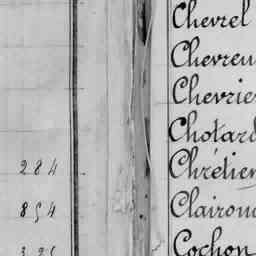 Chevrel
Chevreu
Chevrier
Chotard
284 Chrétien
854 Clairou
Cochon